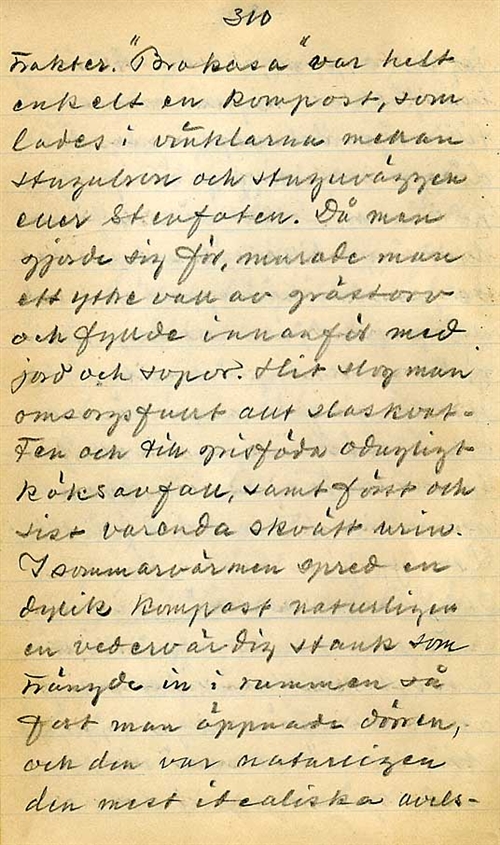 310
trakter. "Brokasa" var helt
enkelt en kompost, som
lades i vinklarna mellan
stugubron och stuguväggen
eller stenfoten. Då man
gjorde sig för, murade man
ett yttre vall av grästorv
och fyllde innanför med
jord och sopor. Hit slog man
omsorgsfullt allt slaskvat-
ten och till grisföda odugligt
köksavfall, samt först och
sist varenda skvätt urin.
I sommarvärmen spred en
dylik kompost naturligen
en vedervärdig stank som
trängde in i rummen så
fort man öppnade dörren,
och den var naturligen
den mest idealiska avels-